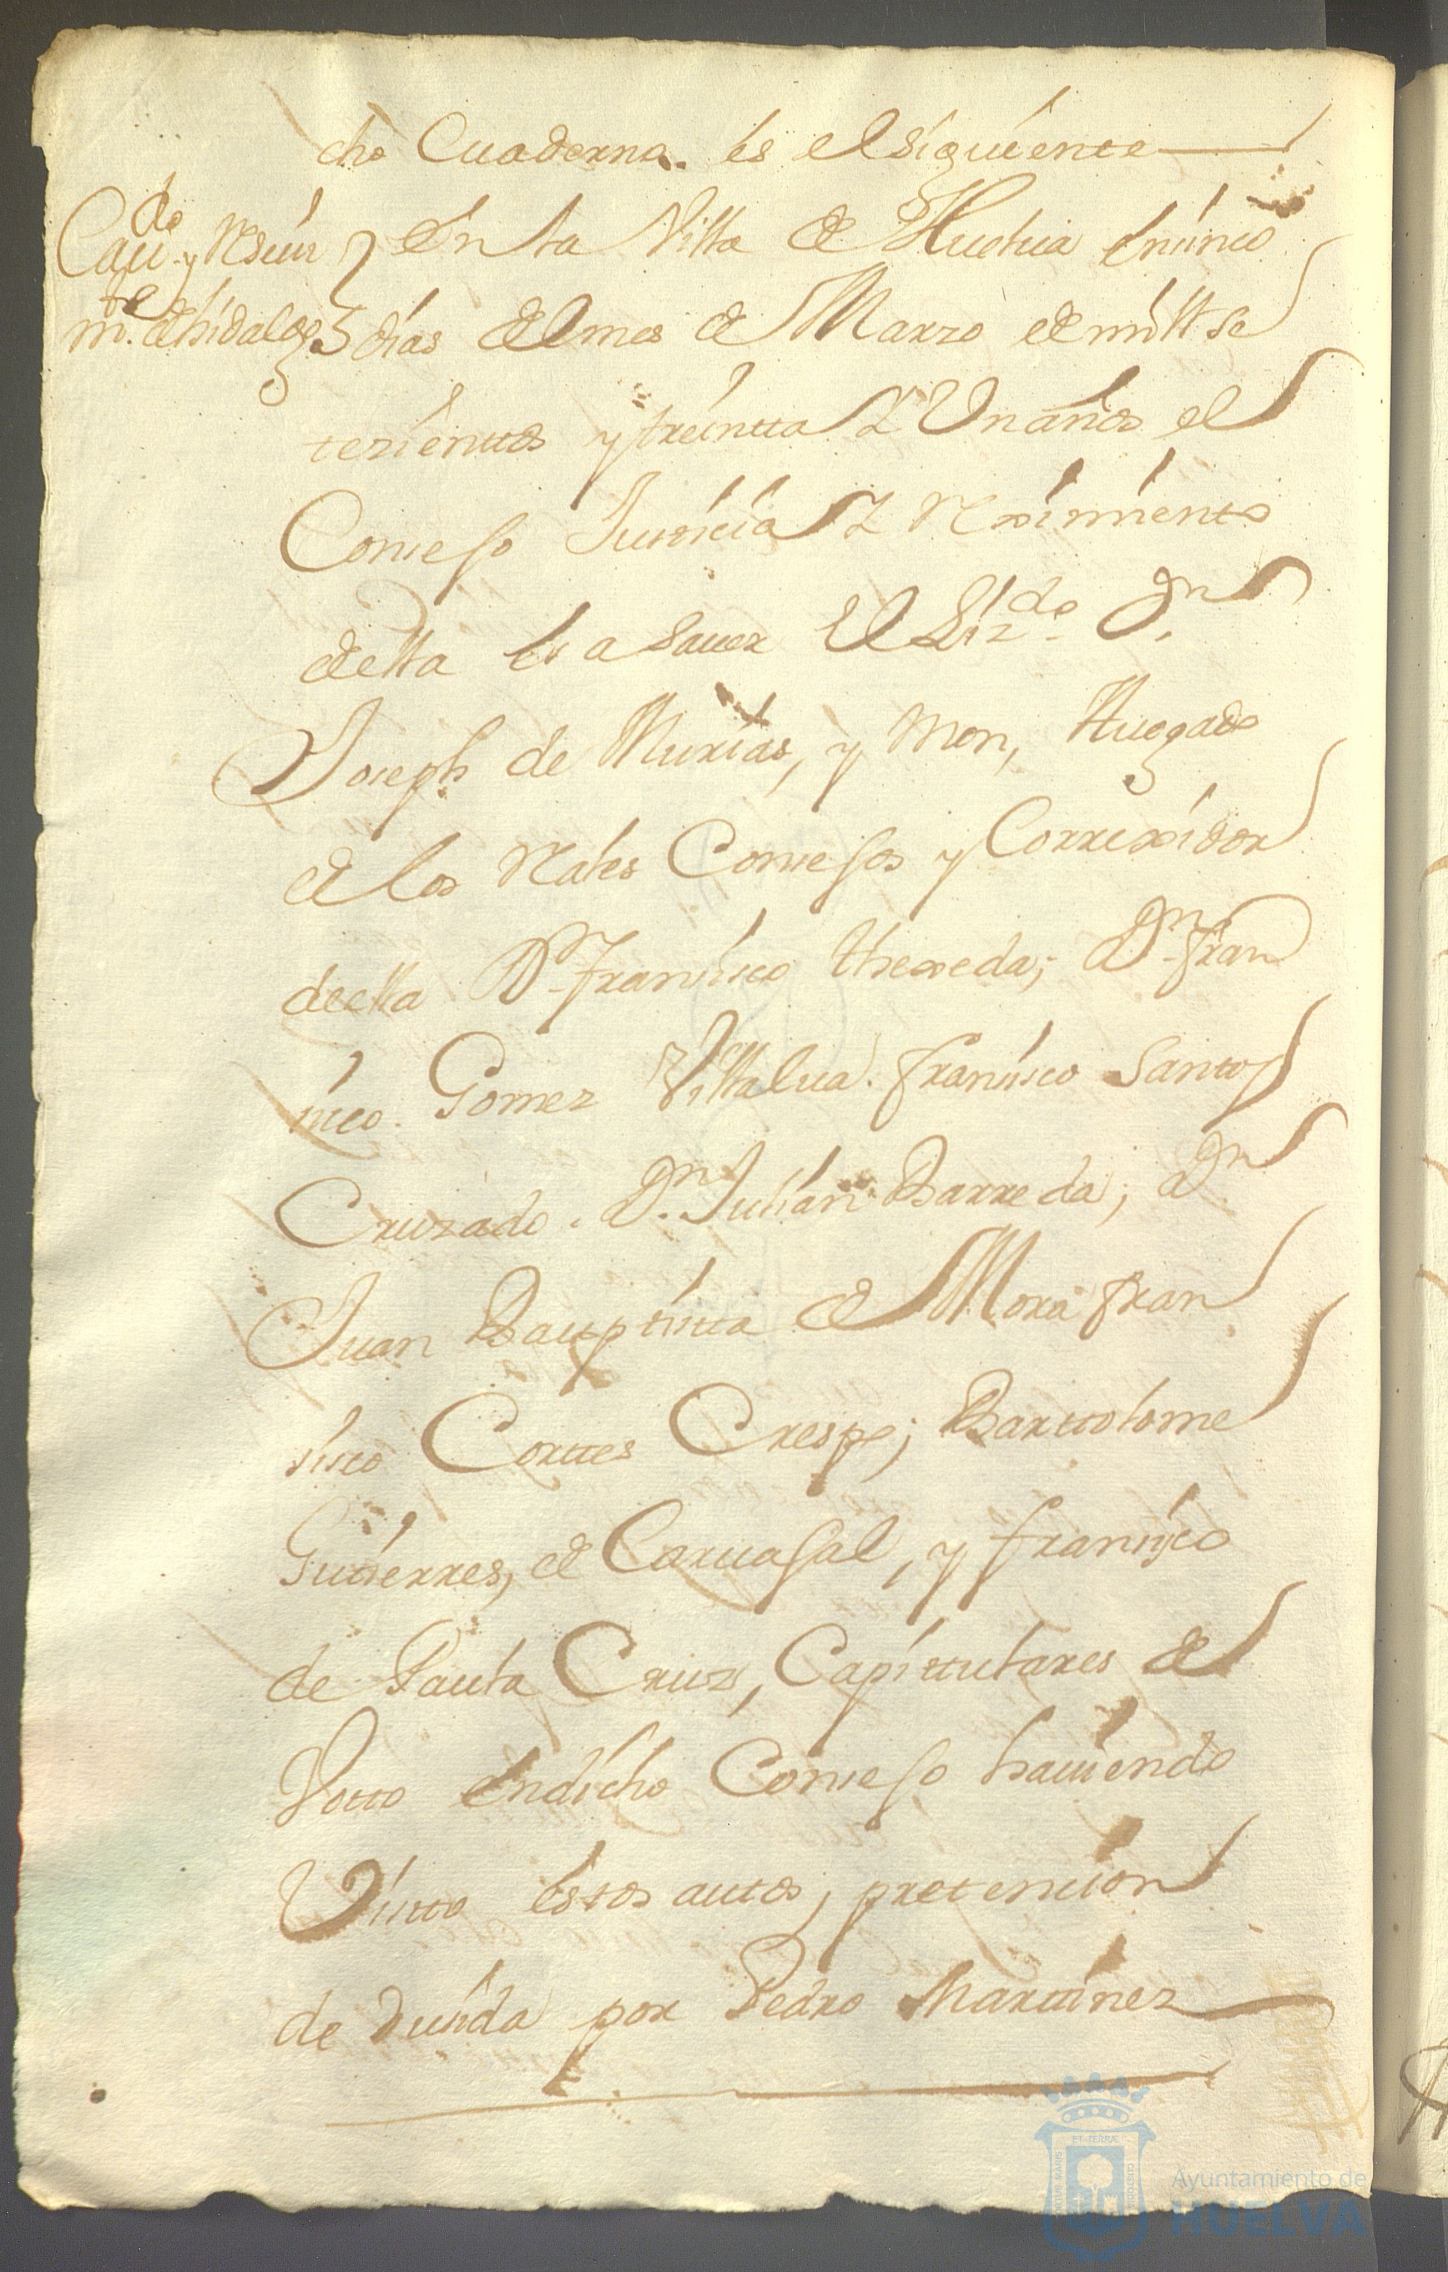 cho Cuaderno. es el siguiente
Caudo y Resiuimto de hidalgo
En la Villa de Huelua en sinco
dias del mes de Marzo de mill se
tezientos y treintta Y Un años el
Consejo Justicia Y Reximiento
della es a Sauer El Lizdo Dn
Joseph de Murias, y Mon, Auogado
de los Rales Consejos y Correxidor
de ella Dn Francisco thexeda; Dn Fran
cisco. Gomez Villalua. Francisco Santos
Cruzado. Dn Julian Barreda; Dn
Juan Bauptista de Mora Fran
sisco Corttes Crespo; Barttolome
Gutierres, de Caruajal, y Francisco
de Paula Cruz, Capittulares de
Votto en dicho Consejo hauiendo
Visto estos autos, pretencion
deduсida por Pedro Marttinez
Ayuntamiento de
HUELVA